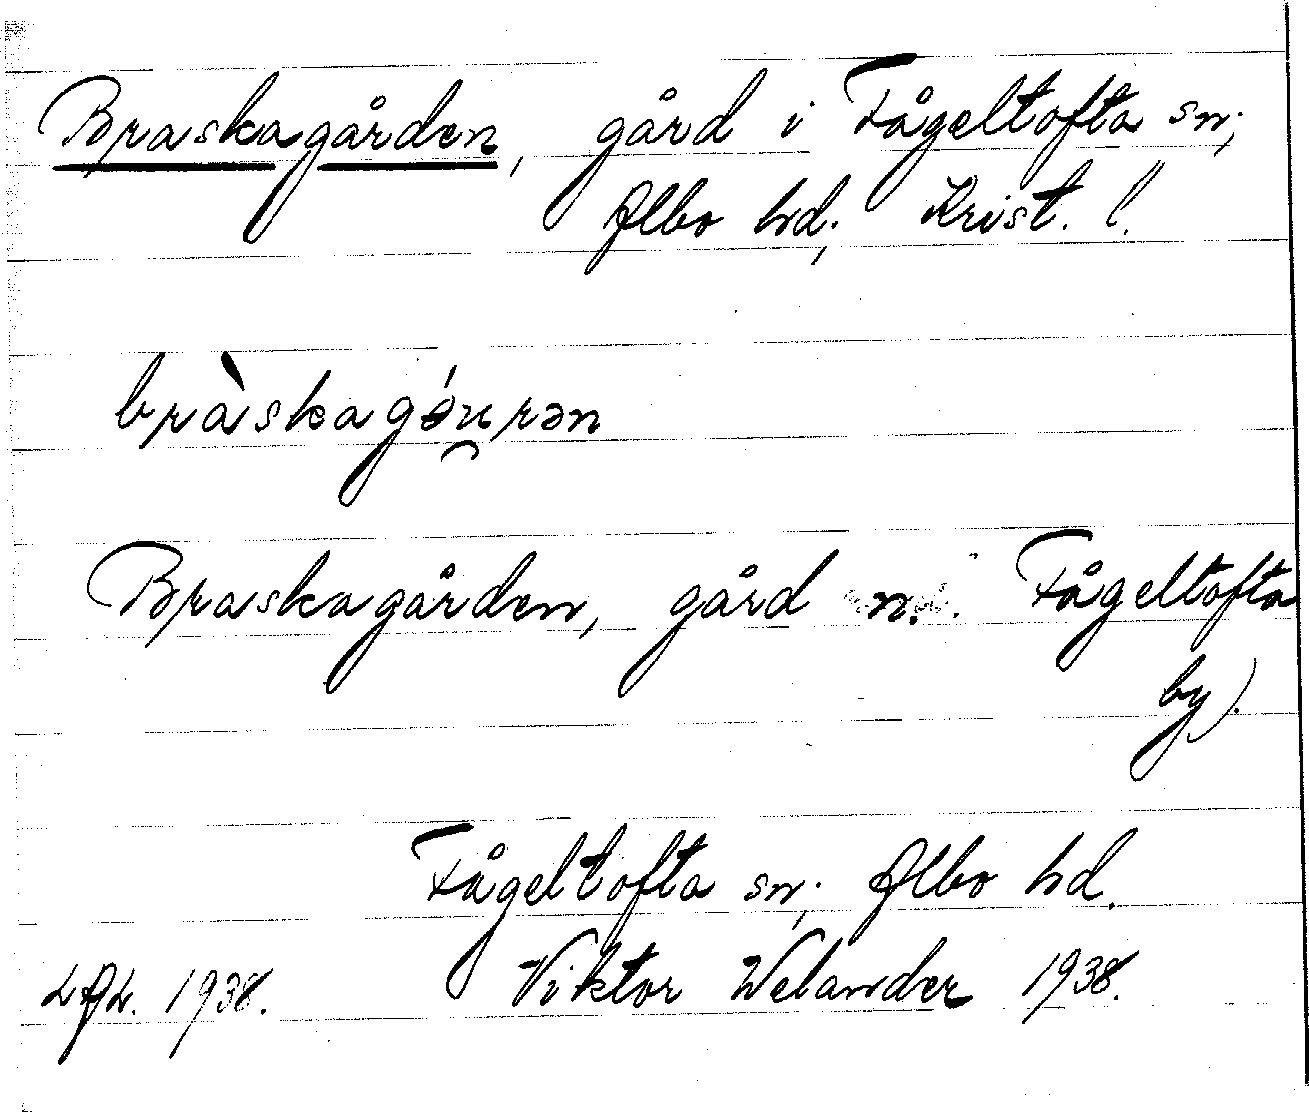 Braskagården, gård i Fågeltofta sn;
Albo hd; Krist. l.
bràskagóu̯rən
Braskagården, gård n. Fågeltofta
by).
Fågeltofta sn; Albo hd.
LAL. 1938. Viktor Welander 1938.